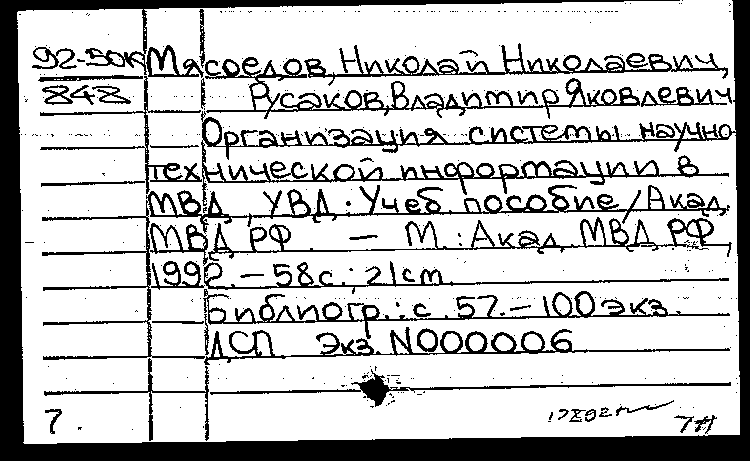 92-50к Мясоедов, Николай Николаевич,
848 Русаков, Владимир Яковлевич
Организация системы научно
технической информации в
МВД, УВД : Учеб. пособие / Акад.
МВД РФ. — М. : Акад. МВД РФ,
1992. — 58 с. ; 21 cm.
Библиогр. : с. 57. — 100 экз.
ДСП Экз. N000006
7. 7Н